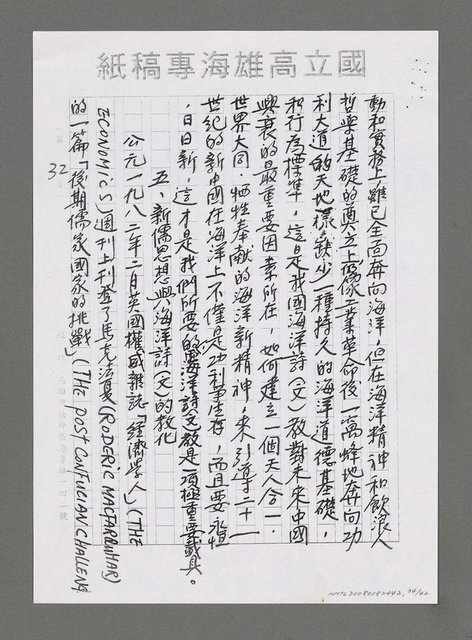 國立高雄海專稿紙
動和實務上雖已全面奔向海洋，但在海洋精神和飲浪人
哲學基礎的奠立上，像工業革命後一窩蜂地奔向功
利大道的天地一樣，缺少一種持久的海洋道德基礎，
和行為標準，這是我國海洋詩（文）教對未來中國
興衰的最重要因素所在，如何建立一個天人合一．
世界大同．犧牲奉獻的海洋新精神，來引導二十一
世紀的新中國在海洋上不僅是功利事生存，而且要永恒
，日日新，這才是我們所要的海洋詩文教是一項極重要載具。
五、新儒思想與海洋詩（文）的教化
公元一九八二年二月英國權威雜誌「經濟學人」（THE
ECONOMICS）週刊上刊登了馬克法夏（RODERIC MACFARRUHAR）
的一篇「後期儒家國家的挑戰」（THE POST CONFUCIAN CHALLENG
32
NMTL20080182442, 34/62